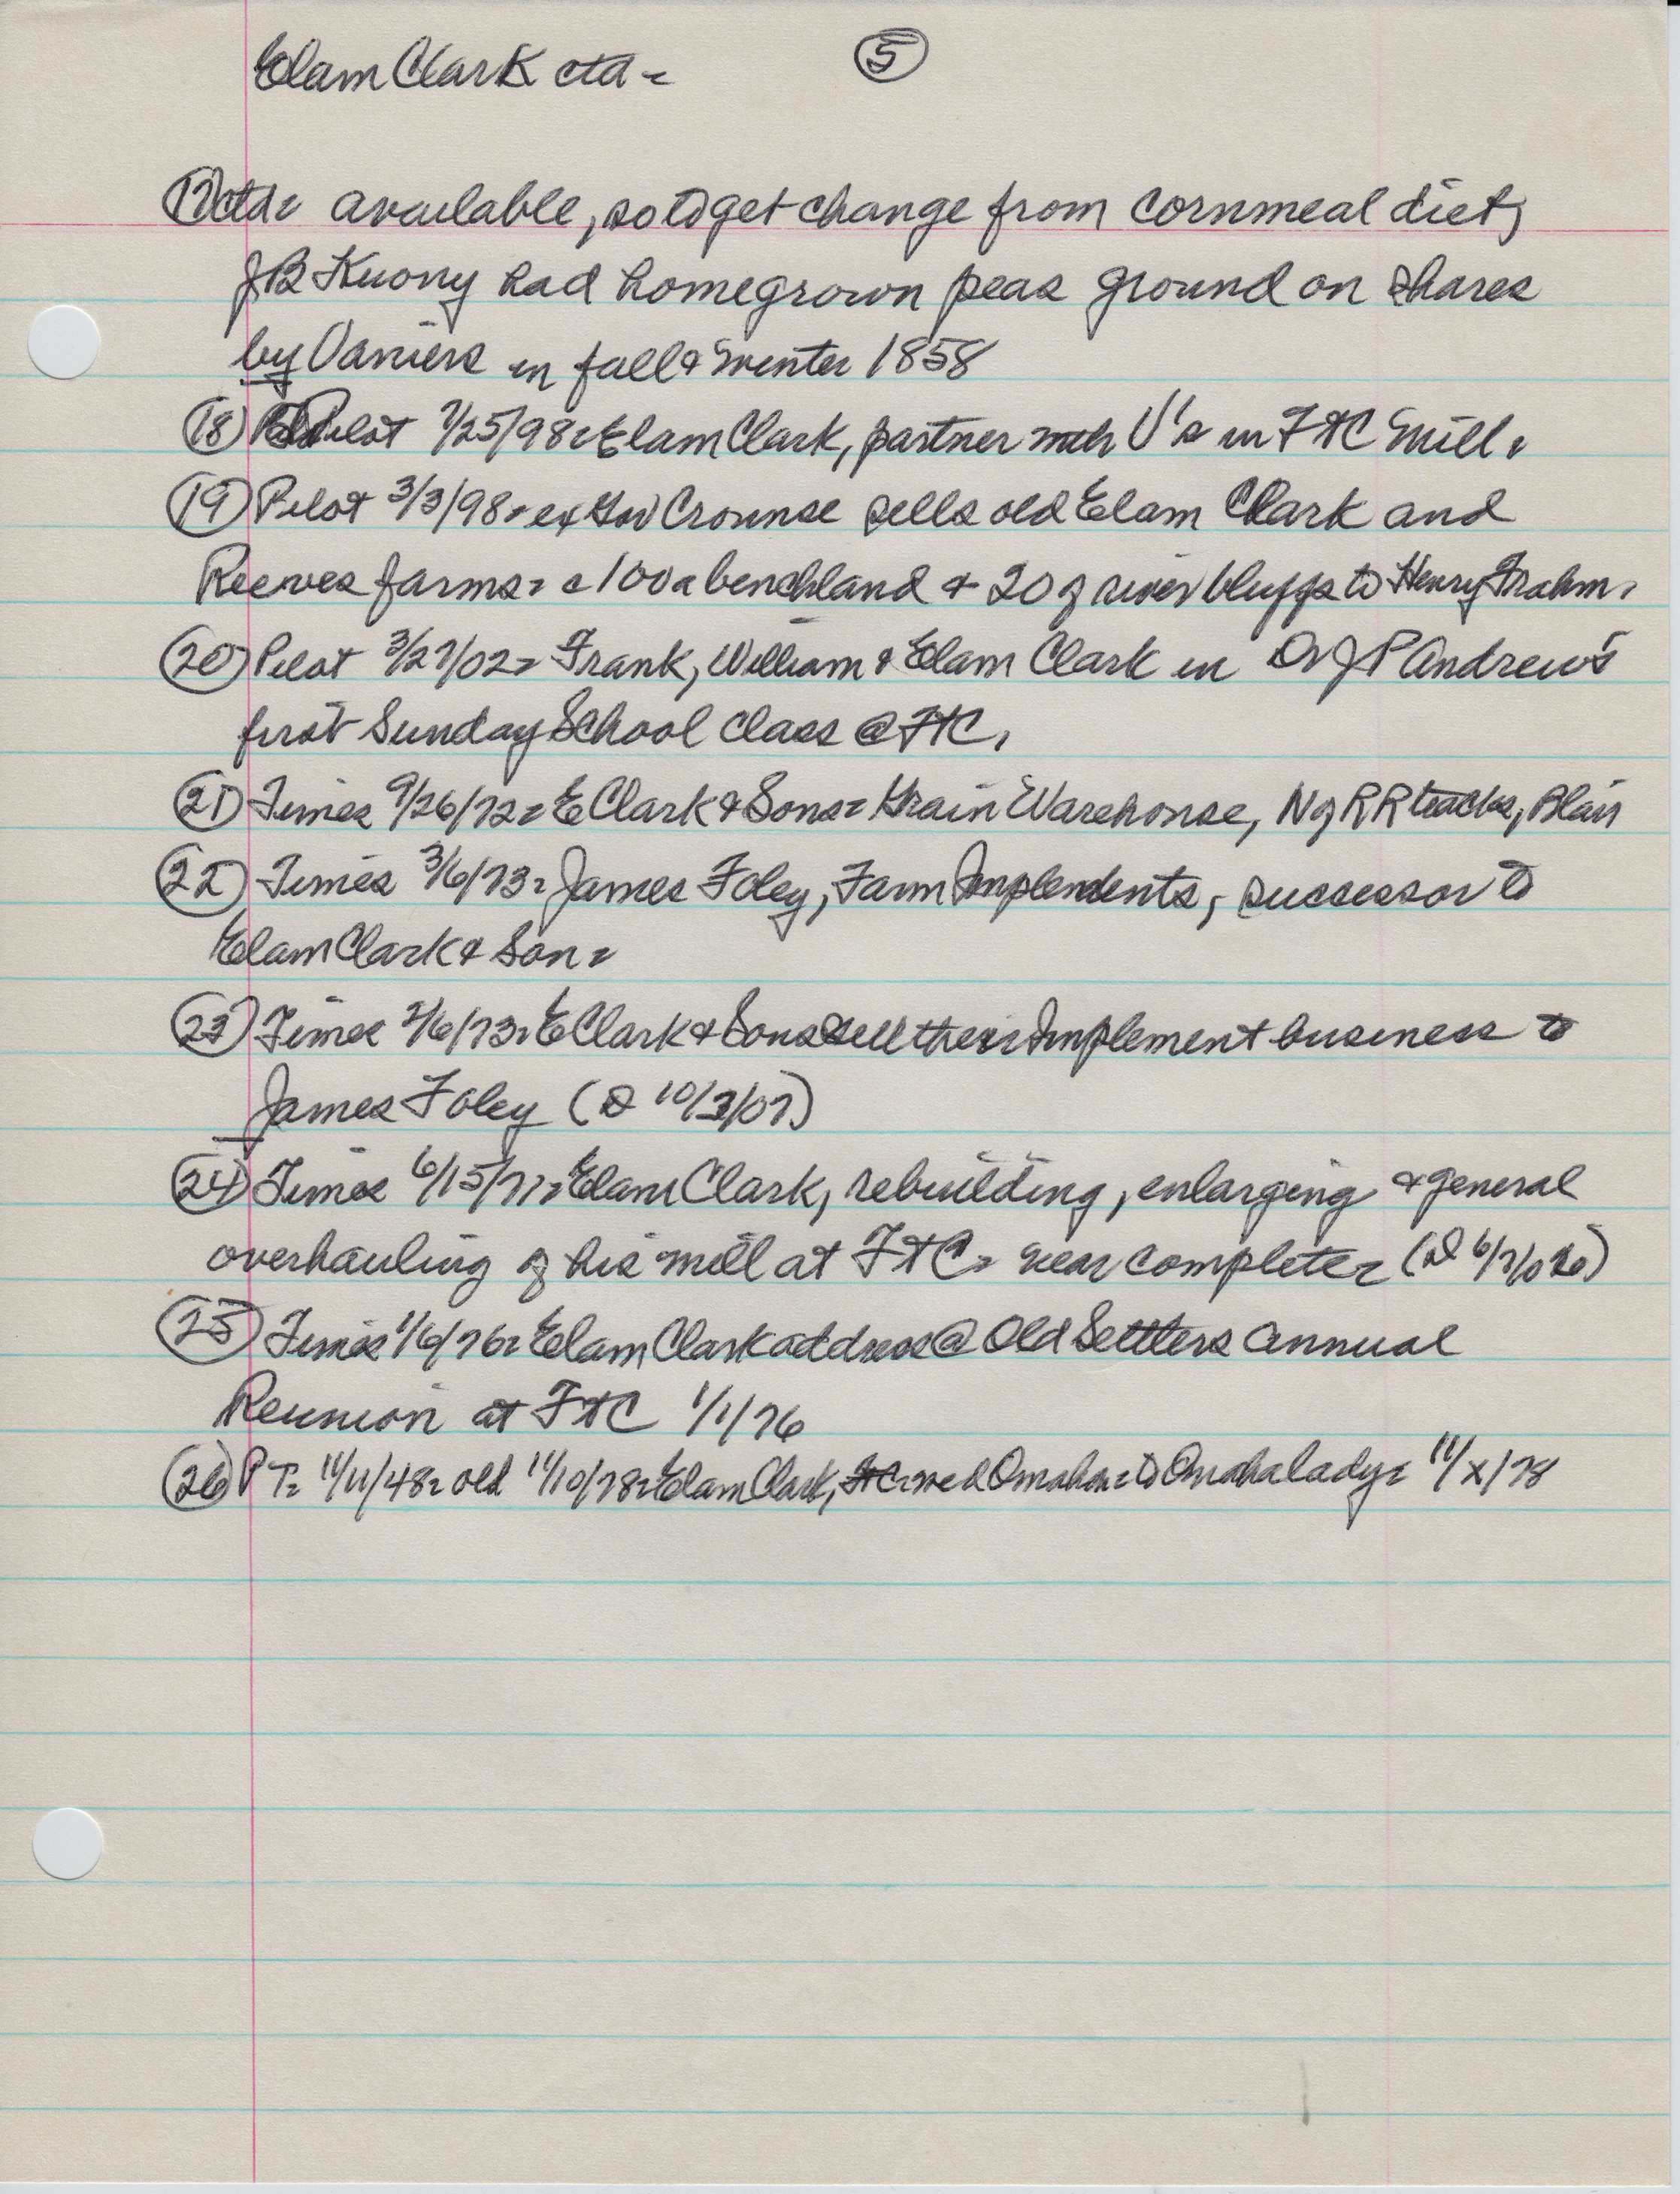 Elam Clark ctd - 5
17 ctd= available, so to get change from cornmeal diet,
JB Kuony had homegrown peas ground on shares
by Vaniers in fall & winter 1858
18 Pilot 7/25/98= Elam Clark, partner with V's in FtC Mill.
19 Pilot 3/3/98= ex Gov Crounse sells old Elam Clark and
Reeves farms= c 100a benchland & 20 of river bluffs to Henry Frahm.
20 Pilot 3/27/02= Frank, William & Elam Clark in Dr JP Andrew's
first Sunday School class @ FtC.
21 Times 9/26/72= E Clark & Sons= Grain Warehouse, N of RR tracks, Blair
22 Times 3/6/73= James Foley, Farm Implements, successor to
Elam Clark & Son=
23 Times 2/6/73= E Clark & Sons sell their Implement business to
James Foley (D 10/3/07)
24 Times 6/15/71= Elam Clark, rebuilding, enlarging & general
overhauling of his mill at FtC= near complete= (D 6/7/06)
25 Times 1/6/76= Elam Clark address @ Old Settlers Annual
Reunion at FtC 1/1/76
26 PT= 11/11/48= old 11/10/78= Elam Clark, wed Omaha= to Omaha lady= 11/x/78